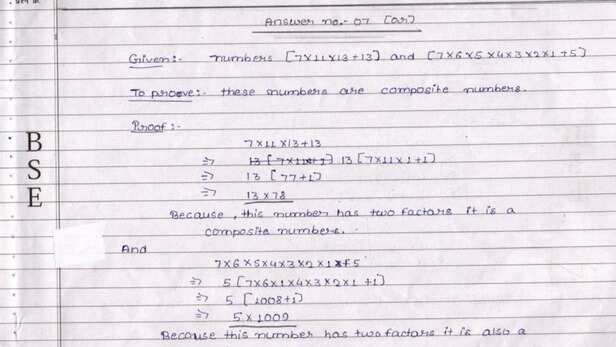 Answer no.- 07 (or)
Given:- numbers [7×11×13+13] and [7×6×5×4×3×2×1+5]
To proove:- these numbers are composite numbers.
Proof:-
7×11×13+13
⇒ 13 [7×11×1+1]
⇒ 13 [77+1]
⇒ 13×78
Because, this number has two factors it is a
composite numbers.
And
7×6×5×4×3×2×1+5
⇒ 5 [7×6×1×4×3×2×1 +1]
⇒ 5 [1008+1]
⇒ 5×1009
Because this number has two factors it is also a
B
S
E